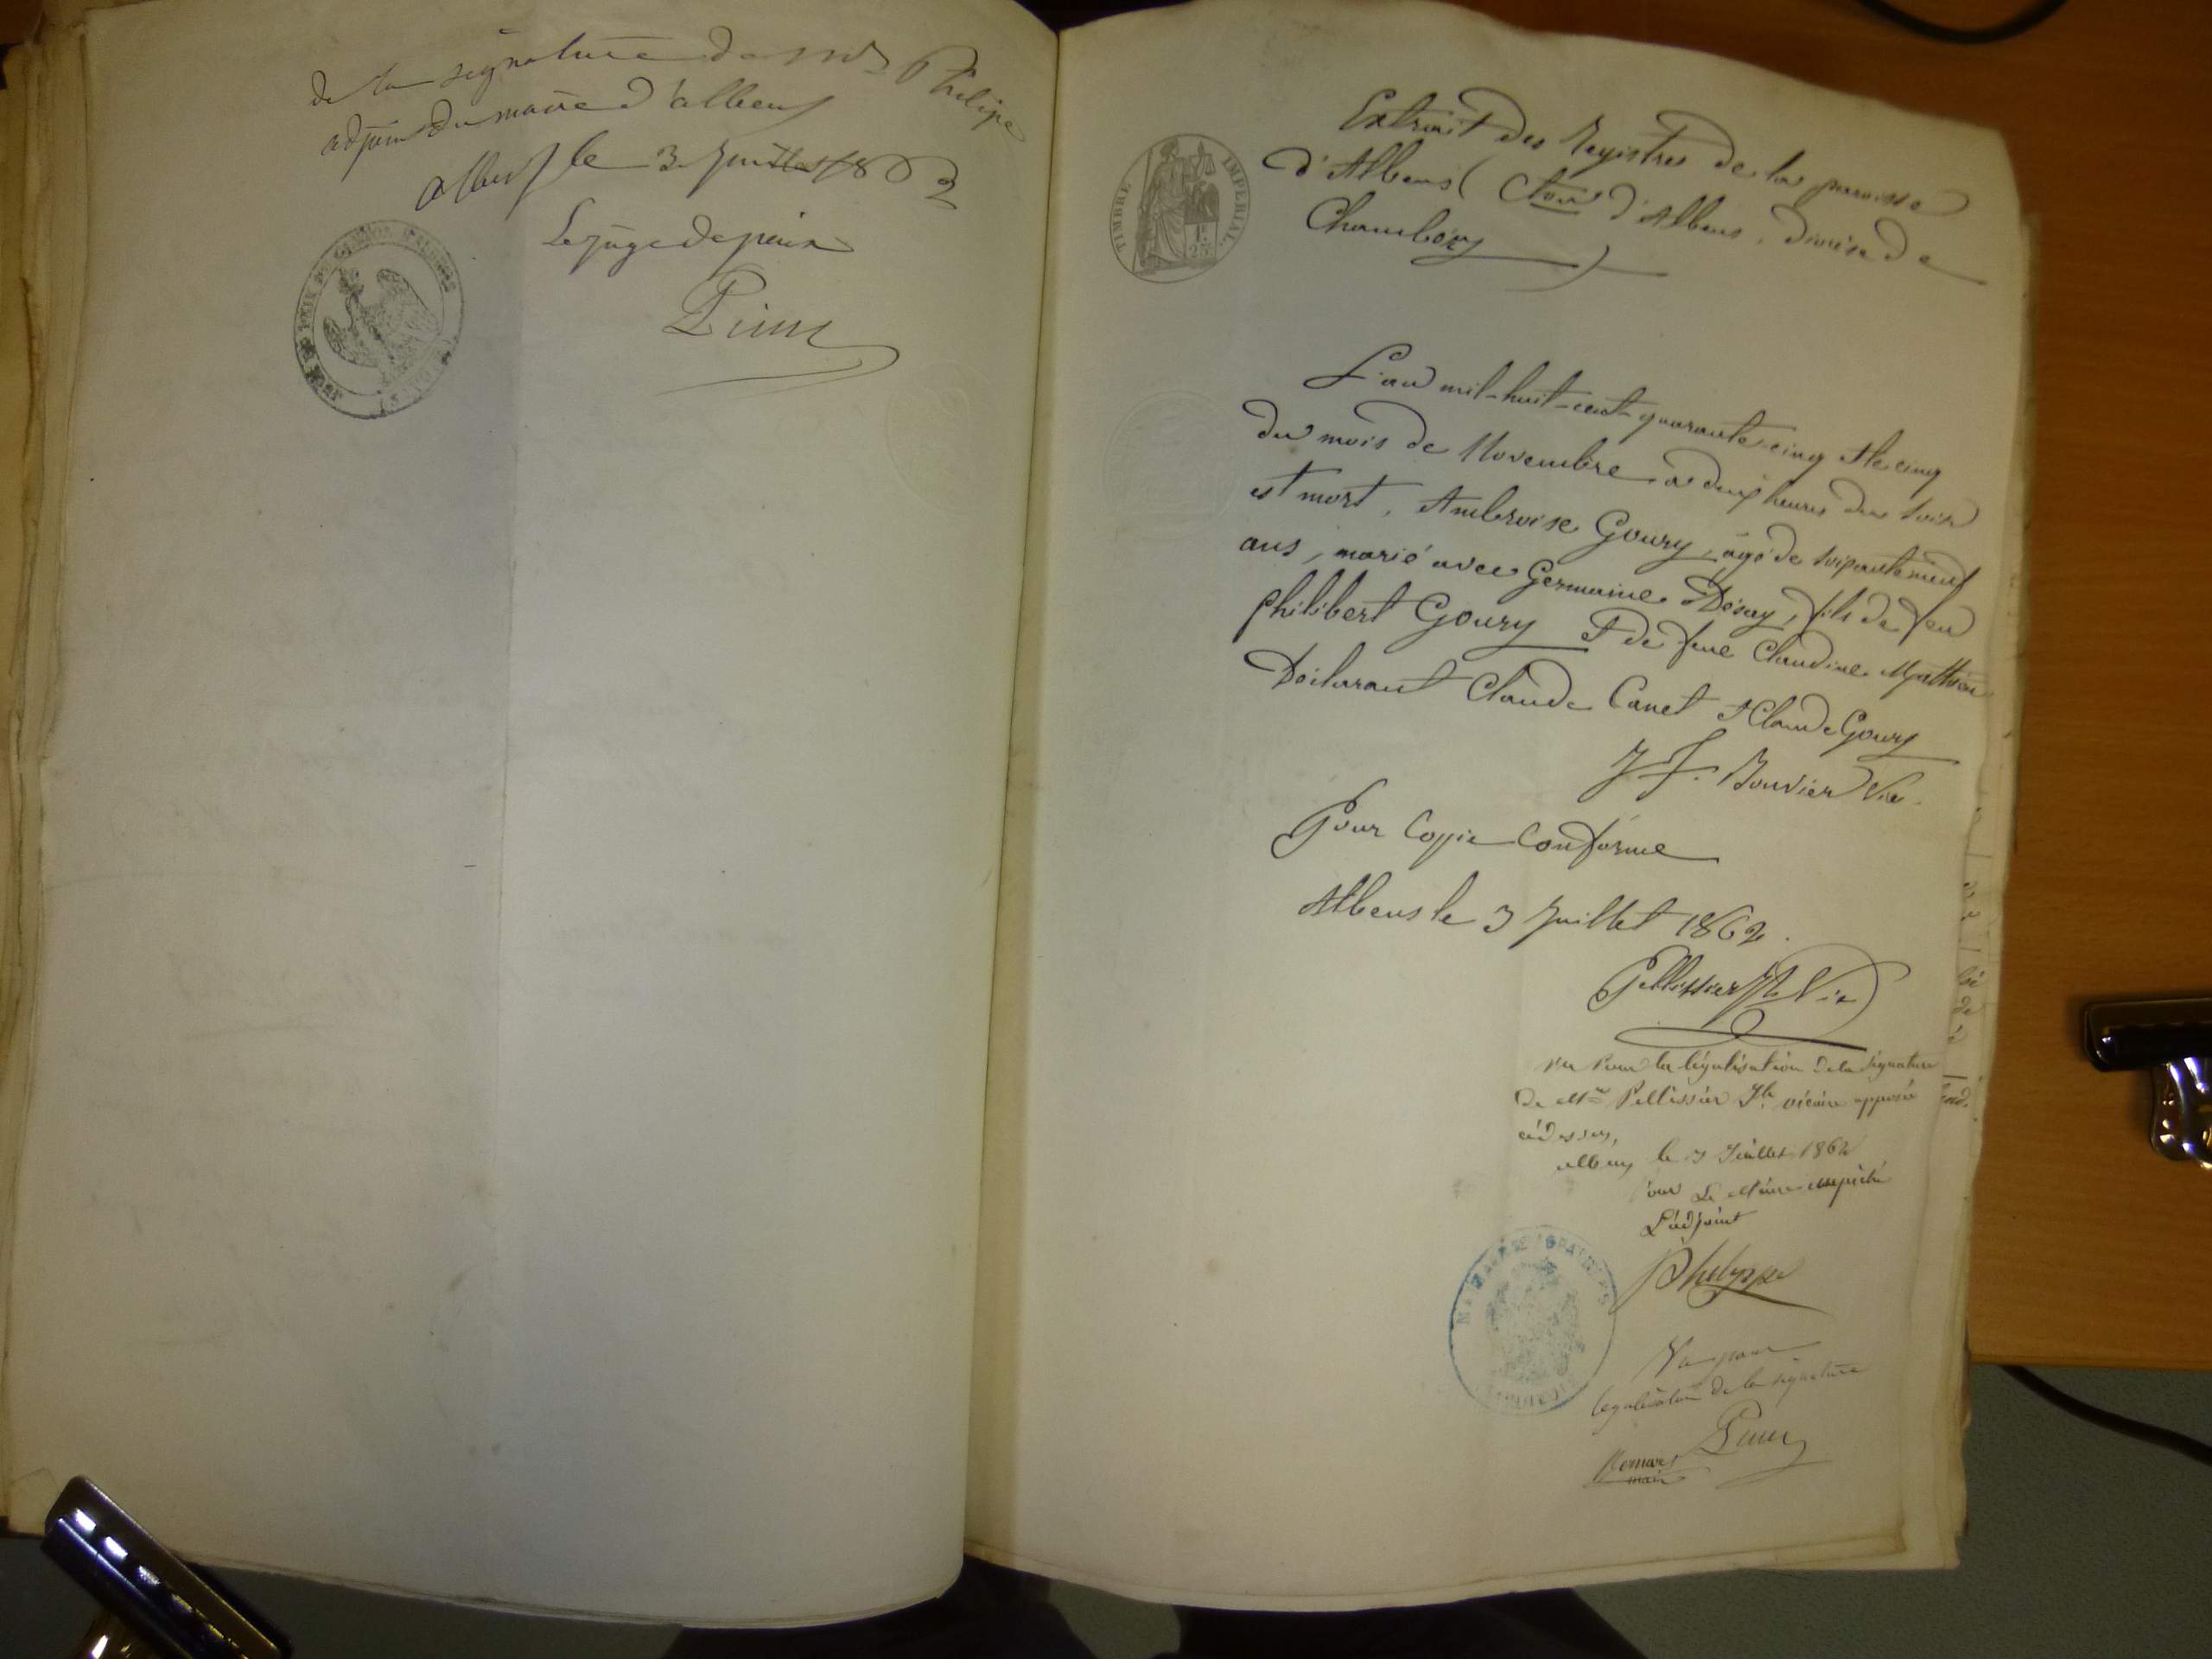 de la signature de Mr Philipe
adjoint du maire d'albens
albens le 3 juillet 1862
Le juge de paix
TIMBRE IMPERIAL
1F.
25C.
Extrait des Registres de la paroisse
d'Albens (Cton d'Albens, diocèse de
Chambéry)
L'an mil-huit-cent-quarante-cinq et le cinq
du mois de Novembre à deux heures du soir
est mort, Ambroise Goury, âgé de soixante neuf
ans, marié avec Germaine Désay, fils de feu
Philibert Goury et de feue Claudine Mathieu
Déclarant Claude Canet et Claude Goury
J F. Bouvier Vic.
Pour Copie Conforme
Albens le 3 Juillet 1862.
Pellissier Jh Vic
vu Pour la légalisation de la signature
De Mr Pellissier Jh vicaire apposée
ci dessus,
albens le 3 Juillet 1862
Pour Le Maire empêché
L'adjoint
Philippe
Vu pour
légalisation de la signature